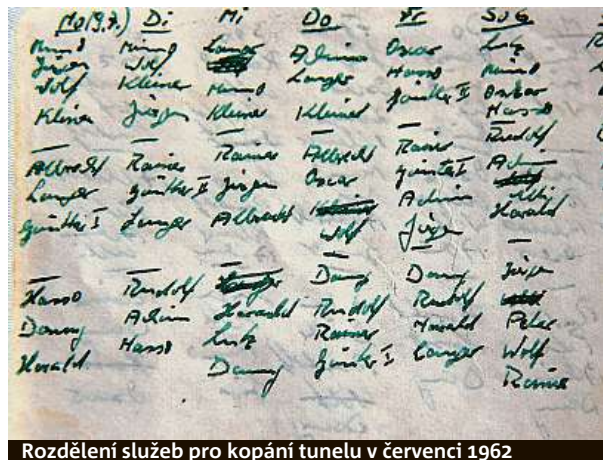 Mo(9.7.) Di Mi Do Fr SoG
Mimmo Mimmo Langer Achim Oscar Lutz
Jürgen Wolf Langer Hasso Mimmo
Wolf Kleiner Mimmo Günter II Oskar
Kleiner Jürgen Kleiner Kleiner Hasso
Rudolf
Albrecht Rainer Rainer Albrecht Rainer Achim
Langer Günter II Jürgen Oscar Günter I
Günter I Langer Albrecht Achim Harald
Wolf Jürgen
Hasso Rudolf Danny Danny Jürgen
Danny Achim Harald Rudolf Rudolf
Harald Hasso Lutz Rainer Harald Peter
Danny Günter I Langer Wolf
Rainer
Rozdělení služeb pro kopání tunelu v červenci 1962